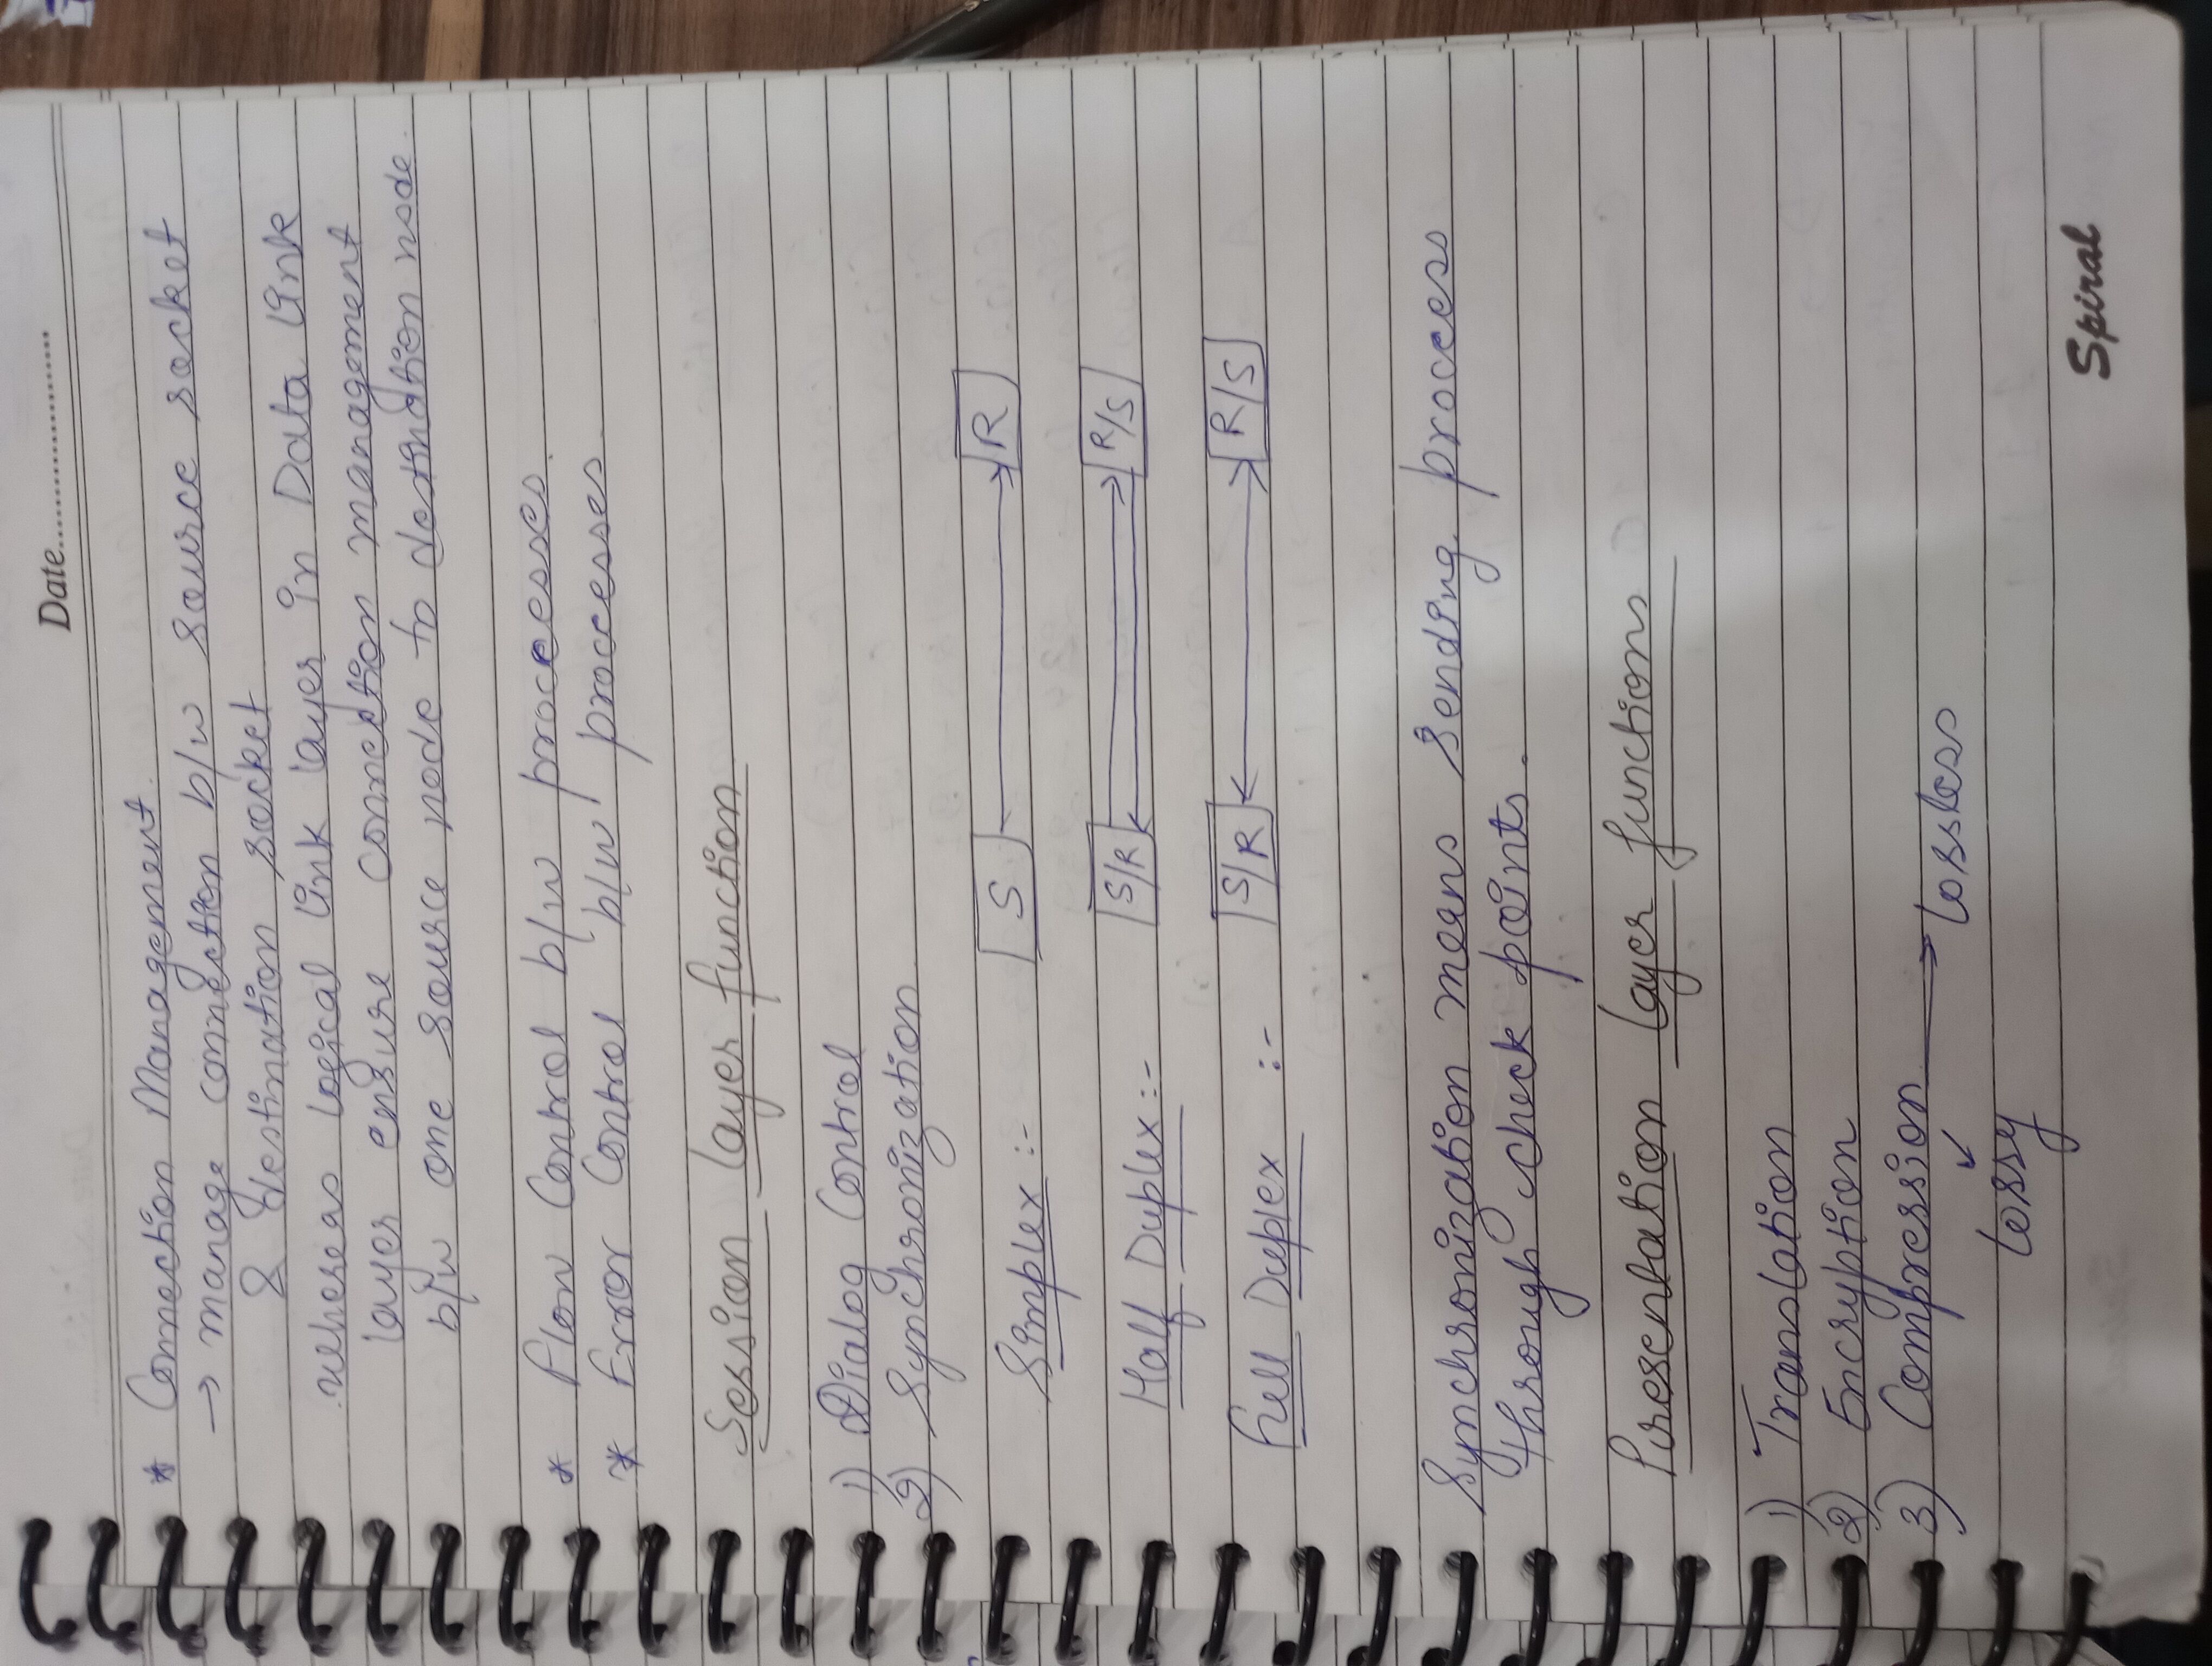 Date....................
* Connection Management.
→ manage connection b/w source socket
& destination socket
whereas logical link layer in Data link
layer ensure connection management
b/w one source node to destination node.
* Flow Control b/w proceesses.
* Error Control b/w proccesses.
Session layer function
1) Dialog Control
2) Synchronization
Simplex :- S R
Half Duplex :- S/R R/S
Full Duplex :- S/R R/S
Synchronization means sending process
through check points.
Presentation layer functions
1) Translation
2) Encryption
3) Compression → lossless
↙
lossy
Spiral